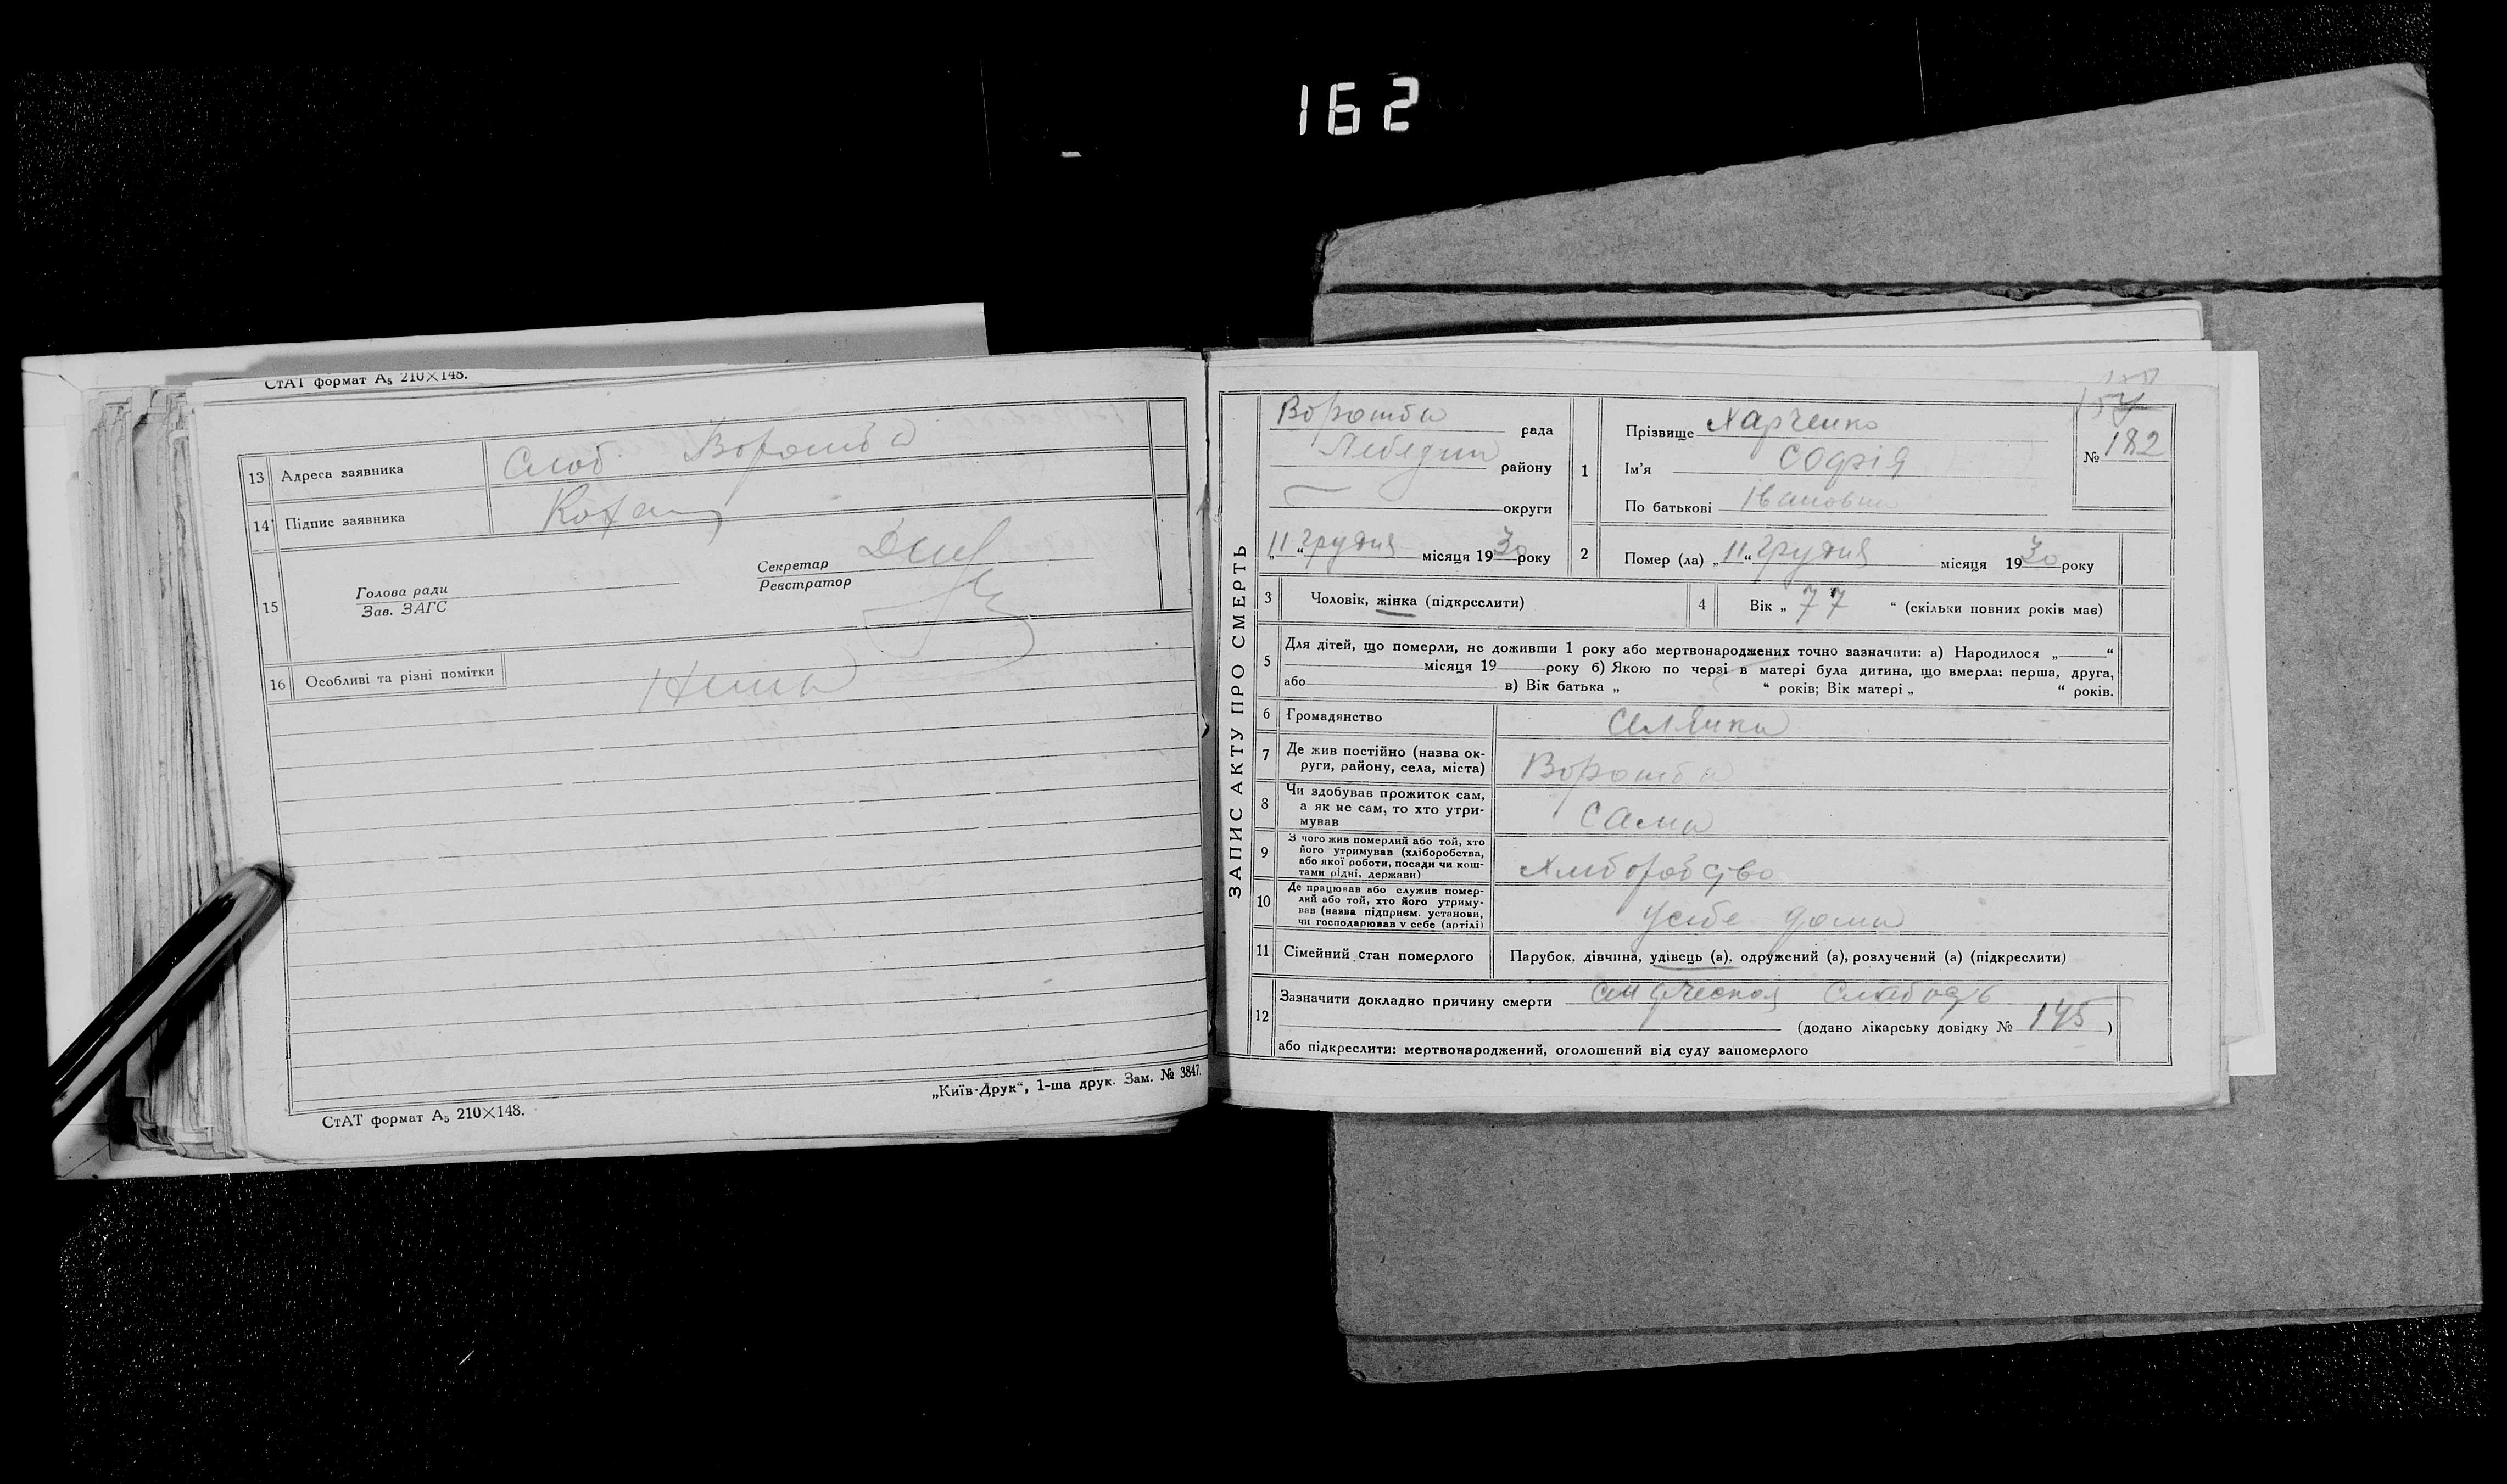 162
СтАТ формат А₅ 210×148.
13 Адреса заявника Слоб Ворожба
14 Підпис заявника
15 Голова ради
Зав. ЗАГС
Секретар
Реєстратор
16 Особливі та різні помітки
„Київ-Друк“, 1-ша друк. Зам. № 3847.
СтАТ формат А₅ 210×148.
ЗАПИС АКТУ ПРО СМЕРТЬ
Ворожба рада
Лебедин району
округи
„11“ грудня місяця 1930 року
1 Прізвище Харченко
Ім'я Софія
По батькові Івановна
№ 182
2 Помер (ла) „11“ грудня місяця 1930 року
3 Чоловік, жінка (підкреслити)
4 Вік „77“ (скільки повних років має)
5 Для дітей, що померли, не доживши 1 року або мертвонароджених точно зазначити: а) Народилося „ “
місяця 19 року б) Якою по черзі в матері була дитина, що вмерла: перша, друга,
або в) Вік батька „ “ років; Вік матері „ “ років.
6 Громадянство селянка
7 Де жив постійно (назва ок-
руги, району, села, міста) Ворожба
8 Чи здобував прожиток сам,
а як не сам, то хто утри-
мував сама
9 З чого жив померлий або той, хто
його утримував (хліборобства,
або якої роботи, посади чи кош-
тами рідні, держави) Хліборобство
10 Де працював або служив помер-
лий або той, хто його утриму-
вав (назва підприєм. установи,
чи господарював у себе (артілі) усебе дома
11 Сімейний стан померлого Парубок, дівчина, удівець (а), одружений (а), розлучений (а) (підкреслити)
12 Зазначити докладно причину смерти слабость
(додано лікарську довідку № 145)
або підкреслити: мертвонароджений, оголошений від суду запомерлого